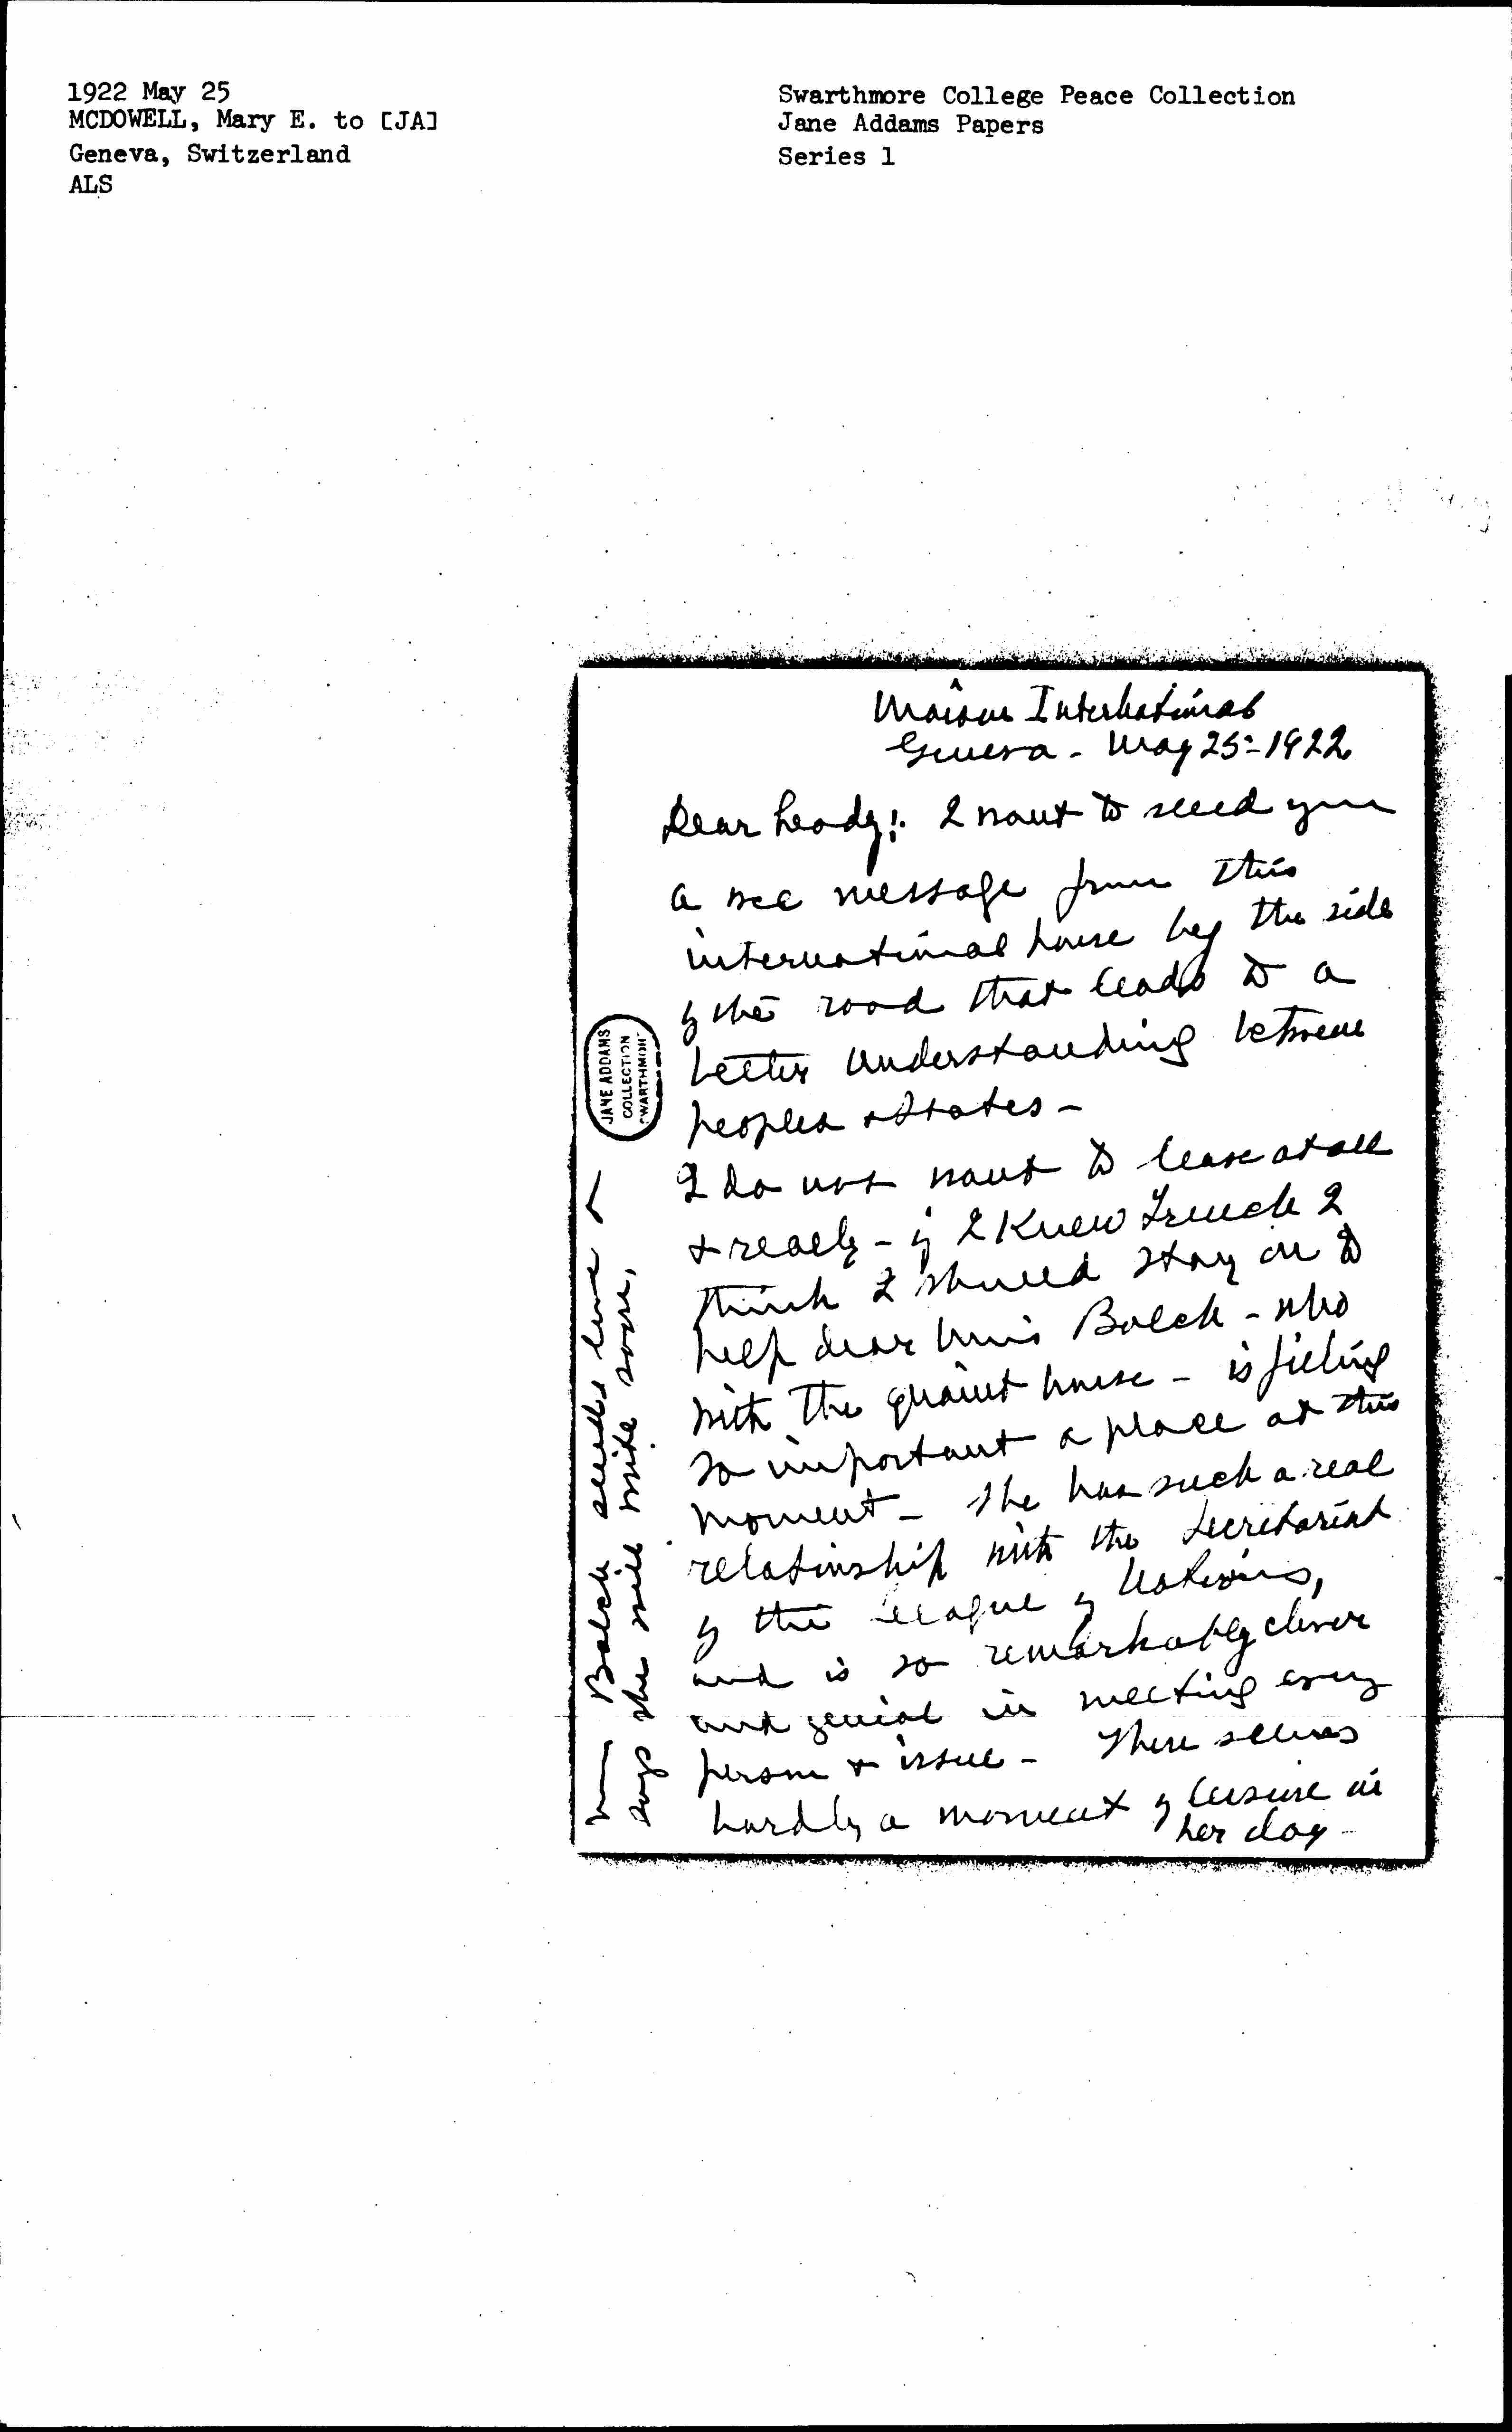 1922 May 25
MCDOWELL, Mary E. to [JA]
Geneva, Switzerland
ALS
Swarthmore College Peace Collection
Jane Addams Papers
Series 1
Maison International
Geneva - May 25 - 1922
Dear Lady: I want to send you
a wee message from this
international house by the side
of the road that leads to a
better understanding between
peoples & States -
I do not want to leave at all
& really - if I knew French I
think I should stay on to
help dear Miss Balch - who
with the quaint house - is filling
so important a place at this
moment - She has such a real
relationship with the Secretariat
of the League of Nations,
and is so remarkably clever
and genial in meeting every
person & issue - There seems
hardly a moment of leisure in
her day -
Miss Balch sends love &
says she will write soon,
JANE ADDAMS
COLLECTION
SWARTHMORE